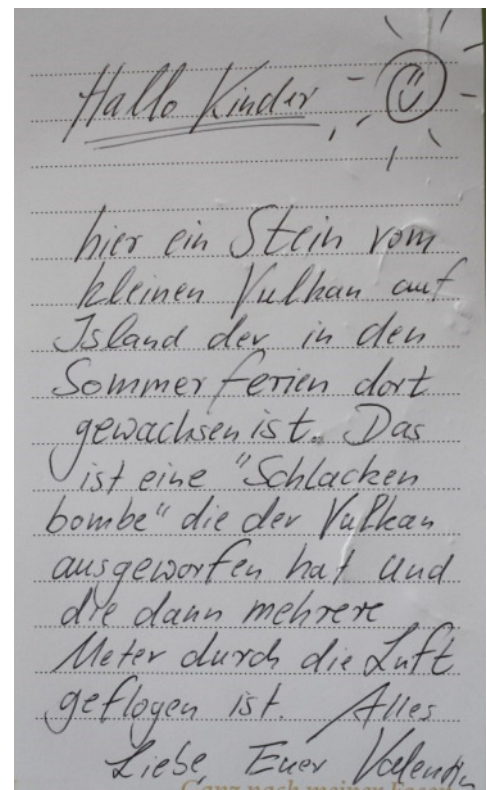 Hallo Kinder
hier ein Stein vom
kleinen Vulkan auf
Island der in den
Sommerferien dort
gewachsen ist. Das
ist eine "Schlacken
bombe" die der Vulkan
ausgeworfen hat und
die dann mehrere
Meter durch die Luft
geflogen ist. Alles
Liebe, Euer Valentin
Ganz nach meinen